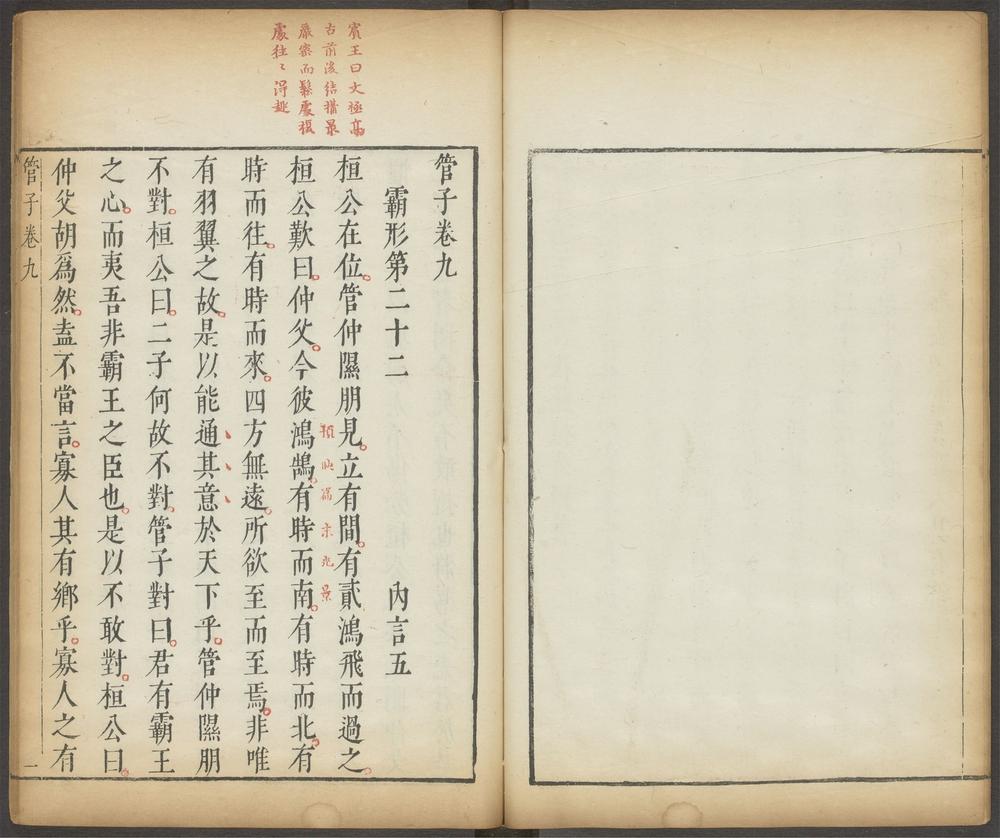 賓王曰文極高
古前後結搆最
嚴密而鬆處複
處往〻得趣
管子卷九
霸形第二十二 內言五
桓公在位管仲隰朋見立有間有貳鴻飛而過之
桓公歎曰仲父今彼鴻鵠有時而南有時而北有
時而往有時而來四方無遠所欲至而至焉非唯
有羽翼之故是以能通其意於天下乎管仲隰朋
不對桓公曰二子何故不對管子對曰君有霸王
之心而夷吾非霸王之臣也是以不敢對桓公曰
仲父胡為然盍不當言寡人其有鄉乎寡人之有
管子卷九 一